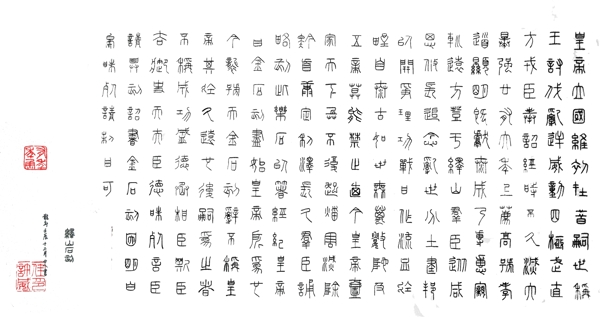 皇帝立國維初在昔嗣世稱
王討伐亂逆威動四極武義直
方戎臣奉詔經時不久滅六
暴強廿有六年上薦高號孝
道顯明既獻泰成乃降專惠親
巡遠方登于繹山群臣從者咸
思攸長追念亂世分土建邦
以開爭理功戰日作流血於
野自泰古始世無萬數陀及
五帝莫能禁止廼今皇帝壹
家天下兵不復起災害滅除
黔首康定利澤長久群臣誦
略刻此樂石以著經紀皇帝
曰金石刻盡始皇帝所為也
今襲號而金石刻辭不稱始皇
帝其於久遠也如後嗣為之者
不稱成功盛德丞相臣斯臣
去疾御史大夫臣德昧死言臣
請具刻詔書金石刻因明白
矣臣昧死請制曰可
繹山石刻